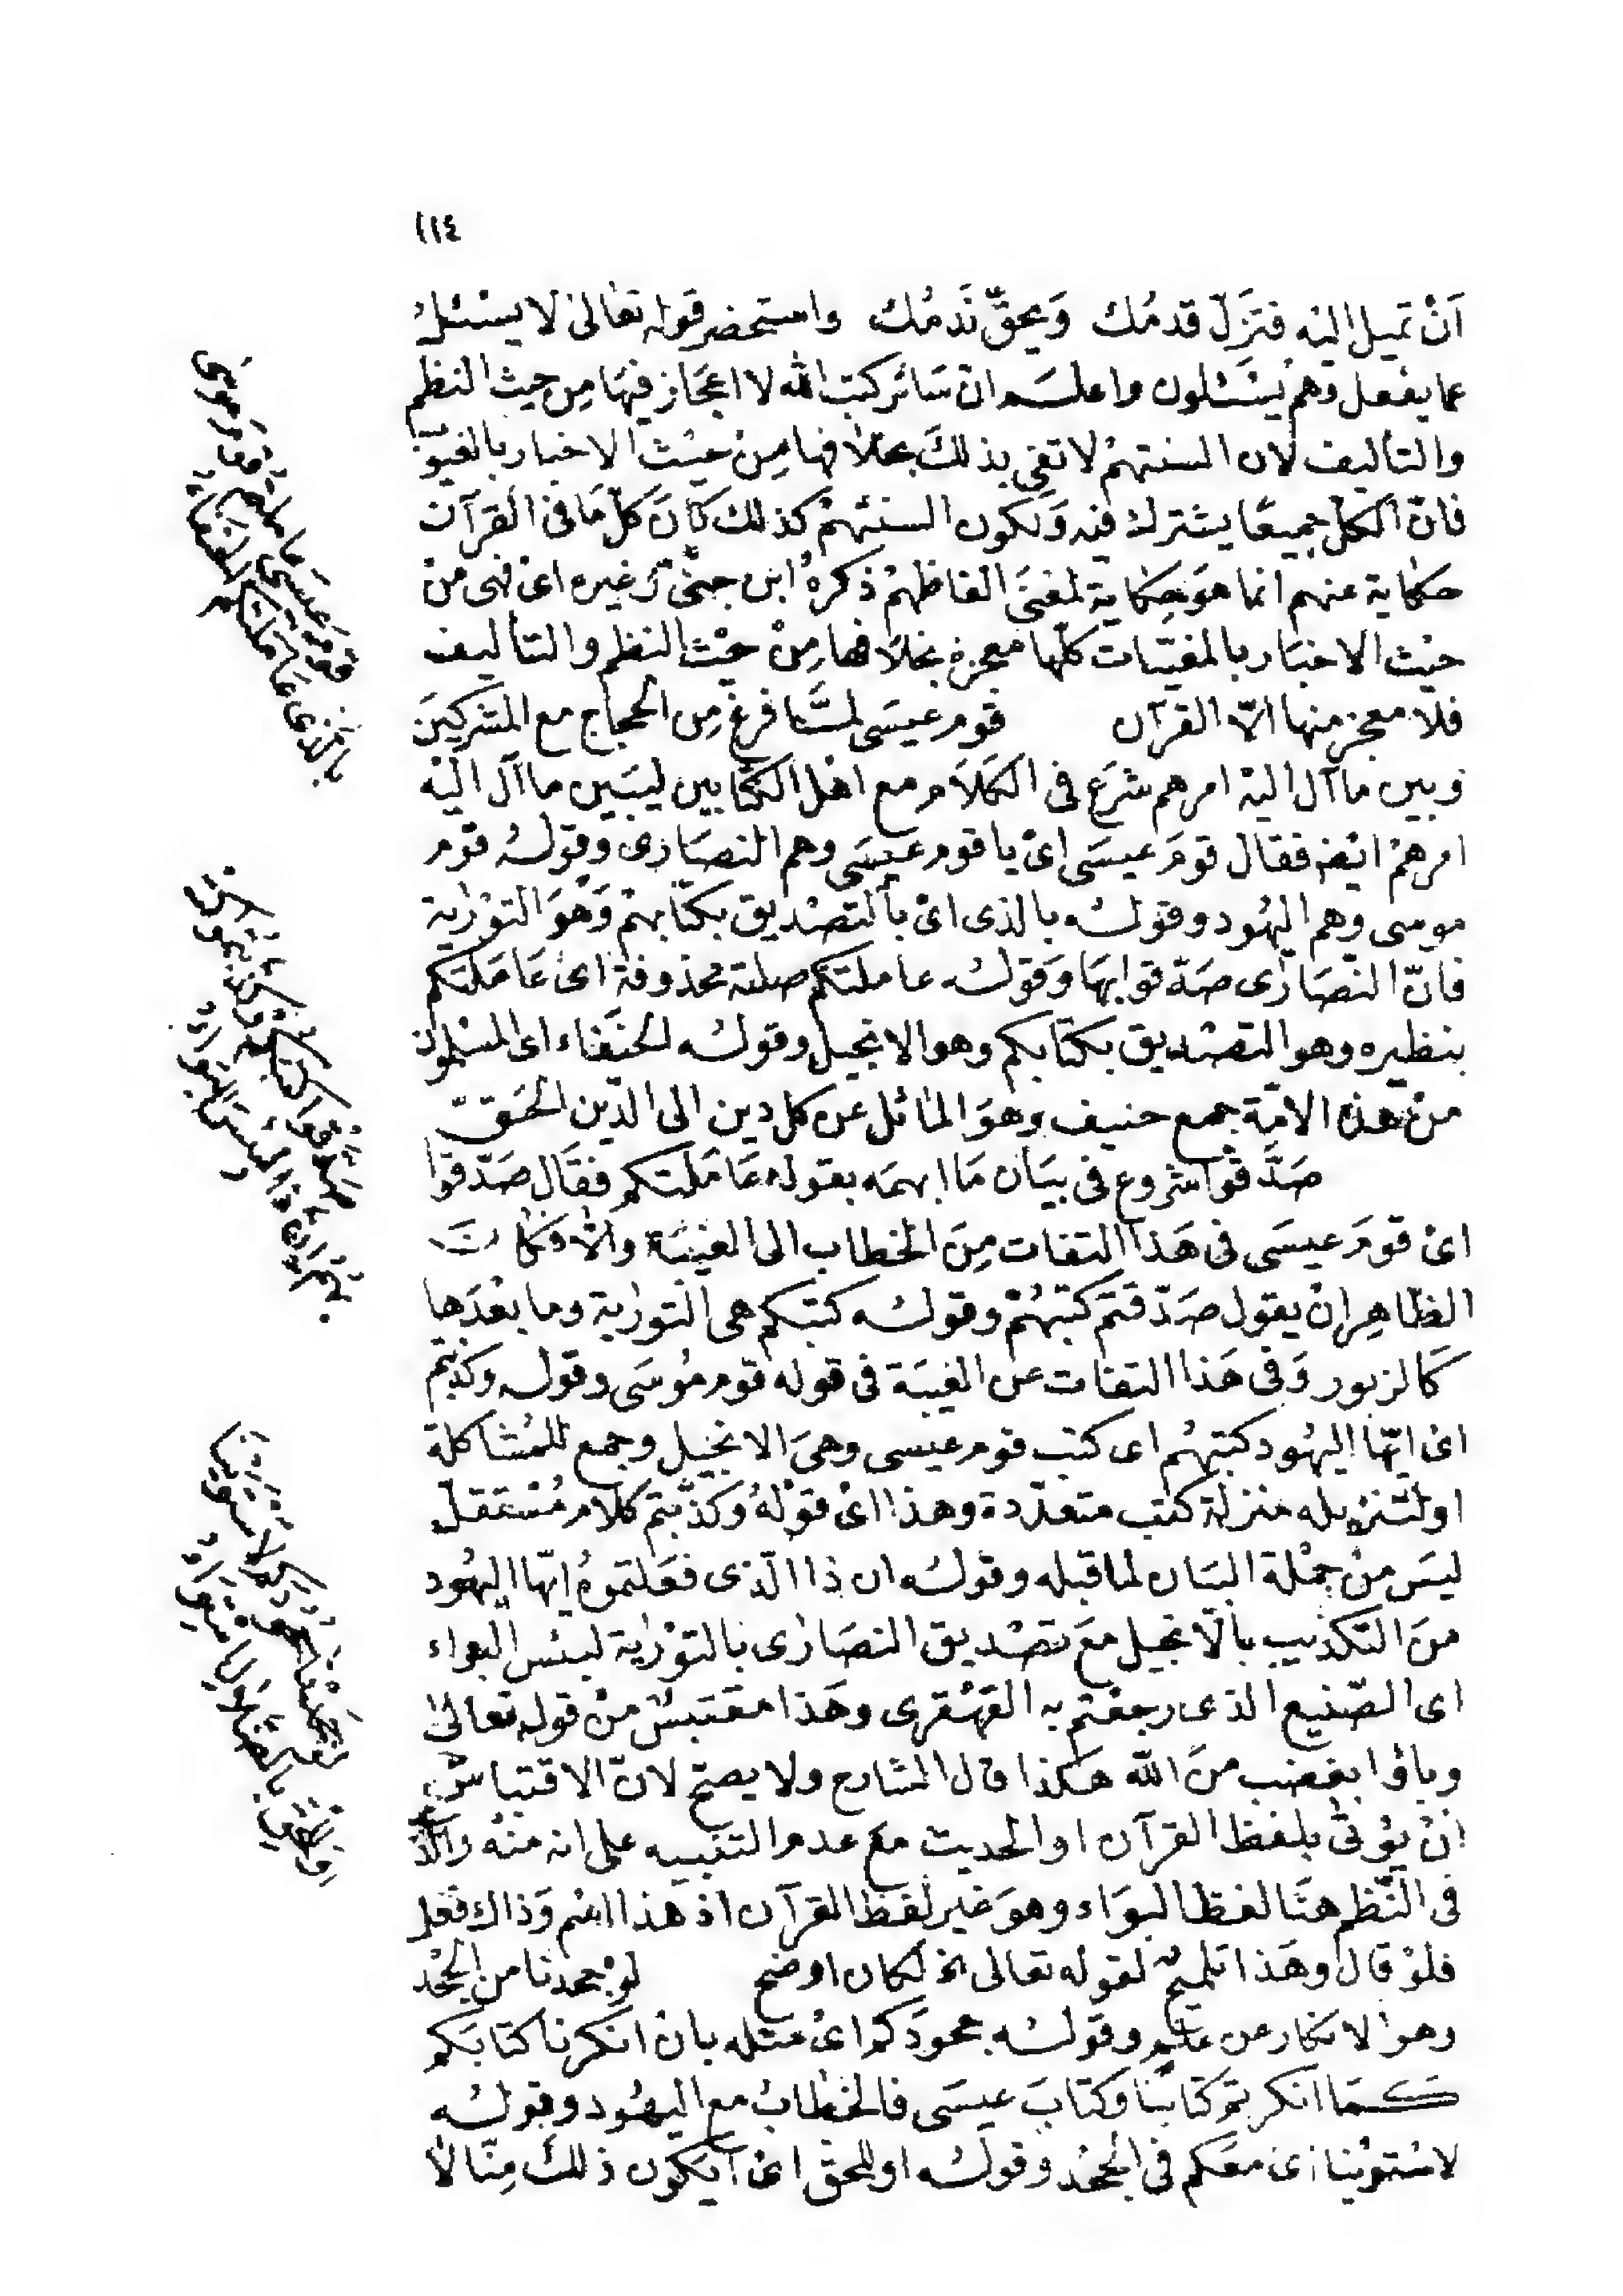 ١١٤
اَنْ تميل اليه فتزَلّ قدمُك وَيحقّ نَدمُك واستحضر قوله تعالىٰ لا يسئل
عما يفعل وهم يُسئلون واعلم انّ سَائر كتب الله لا اعجَاز فيهَا مِن حيث النظم
والتأليف لان السنتهمْ لا تفى بذلكَ بخلافها مِنْ حيْث الاخبار بالغيوب
فانّ الكل جميعًا يشترك فيه وَلكون السنتهمْ كذلك كانَ كلّ مَا فى القرآن
حكاية عنهم انما هوَ حِكاية لمعنَى الفاظهمْ ذكرهُ ابن جنّى وَغيره اى فهى منْ
حيْث الاخبَار بالمغيّبات كلّها معجزة بخلافها مِنْ حيْث النظم والتأليف
فلا معجز منها الّا القرآن قوم عيسَى لمَّا فرغ مِن الحجاج مع المشركينَ
وبين ما آل اليه امرهم شرَع فى الكلَام مع اهل الكتابين ليبَين ما آل اليْه
امرهمْ ايضا فقال قومَ عيسَى اىْ يا قوم عيسَى وهم النصَارى وقولهُ قوْم
موسى وهم اليهُود وقولهُ بالذى اىْ بالتصْديق بكتَابهمْ وَهوَ التوْرٰية
فانّ النّصَارٰى صَدّقوا بهَا وَقولهُ عاملتكم صلته محذوفة اىْ عَامَلتكم
بنظيره وهو التصْديق بكتابكم وهو الانجيل وقولهُ الحنَفاء اى المسْلمون
منْ هذه الامّة جمع حنيف وهوَ المائل عن كل دين الى الدّين الحَقّ
صَدَّقوا شروع فى بيَان مَا ابهمَه بقوله عَامَلتكم فقَال صَدّقوا
اىْ قومَ عيسَى فى هَذا التفات مِنَ الخطاب الى الغيْبَة والّا فكانَ
الظاهِر انْ يقول صَدّقتم كتبهُمْ وقولهُ كتبكم هى التورٰية وما بعْدَها
كالزبور وَفى هَذا التفات عن الغيبَة فى قوله قوْم مُوسَى وقوله وكذبتم
اىْ ايّها اليهُود كتبهُم اى كتب قوم عيسى وهىَ الانجيل وجمع للمُشاكلة
او لتنزيله منزلة كتب متعدّدة وهذا اىْ قوْلهُ وَكذّبتم كلَام مُسْتقلّ
ليسَ منْ جمْلة البيَان لما قبله وقولهُ ان ذا الّذى فعَلتموهُ ايّها اليهُود
منَ التكذيب بالانجيل معَ تصْديق النصَارٰى بالتوْرٰية لبئس البواء
اى الصّنيع الذى رجعْتم به القهْقرى وهَذا مقتبسٌ منْ قوله تعالىٰ
وباؤا بغضب منَ الله هكذا قال الشارح ولا يصحّ لانّ الاقتباس
انْ يؤتىٰ بلفظ القرآن او الحديث معَ عدم التنبيه على انه منه والّذى
فى النّظم هنَا لفظ البوَاء وهوَ غير لفظ القرآن اذ هذا اسْم وَذاك فعل
فلوْ قال وهَذا تلميحٌ لقوله تعالى الخ لكان اوضح لوْ جحدنا من الجحْد
وهو الانكار عن علم وقولهُ جحودَكم اىْ مثله بانْ انكرنا كتابَكم
كمَا انكرتم كتابَنا وكتابَ عيسَى فالخطابُ مع اليهُود وقولهُ
لاسْتوَيْنا اى معَكم فى الجحْد وقولهُ او للحق اىْ ايكون ذلك مِنّا لا
قوم عيسى عاملتم قوم موسى
بالذى عاملتكم الحنفاء
صدقوا كتبكم وكذبتم كتبهم
ان ذا لبئس البواء
لو جحدنا جحودكم لاستوينا
او للحق بالضلال استواء